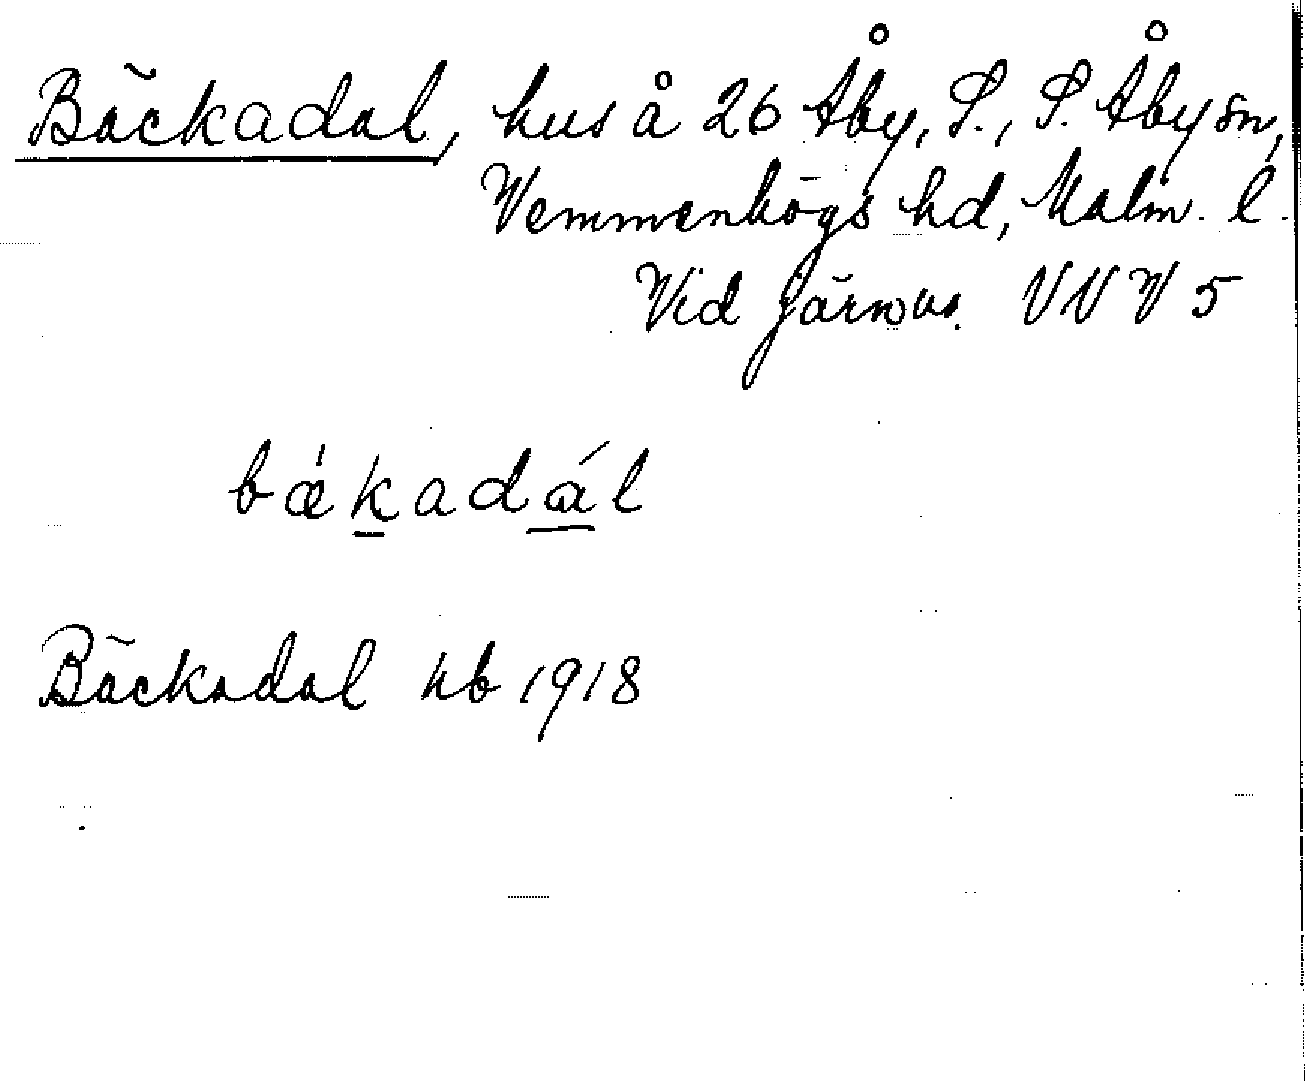 Bäckadal, hus å 26 Åby, S., S. Åby sn,
Vemmenhögs hd, Malm. l.
Vid järnvä. VVV 5
bǽkadál
Bäckadal kb 1918